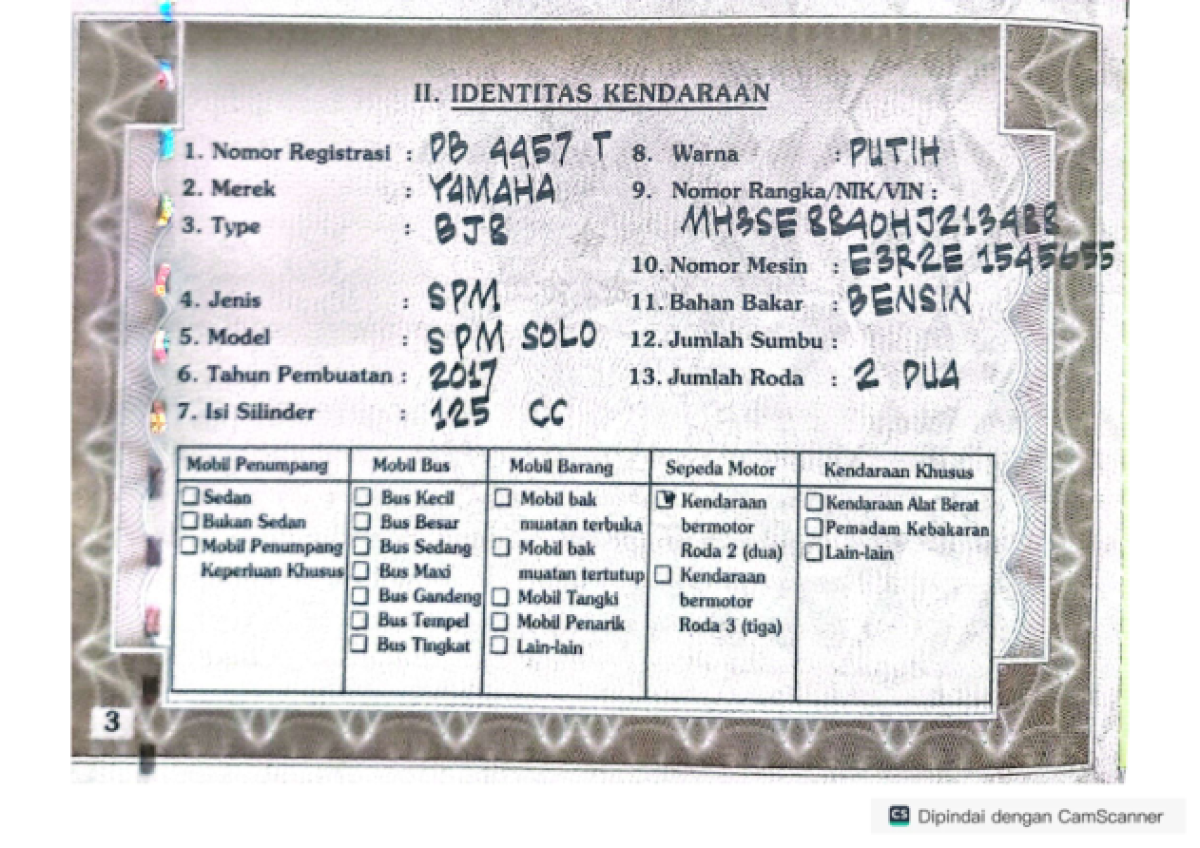 II. IDENTITAS KENDARAAN
1. Nomor Registrasi : DB 4457 T
2. Merek : YAMAHA
3. Type : BJ8
4. Jenis : SPM
5. Model : SPM SOLO
6. Tahun Pembuatan : 2017
7. Isi Silinder : 125 CC
8. Warna : PUTIH
9. Nomor Rangka/NIK/VIN :
MH3SE88A0HJ213488
10. Nomor Mesin : E3R2E 1545655
11. Bahan Bakar : BENSIN
12. Jumlah Sumbu :
13. Jumlah Roda : 2 DUA
Mobil Penumpang
Sedan
Bukan Sedan
Mobil Penumpang
Keperluan Khusus
Mobil Bus
Bus Kecil
Bus Besar
Bus Sedang
Bus Maxi
Bus Gandeng
Bus Tempel
Bus Tingkat
Mobil Barang
Mobil bak
muatan terbuka
Mobil bak
muatan tertutup
Mobil Tangki
Mobil Penarik
Lain-lain
Sepeda Motor
Kendaraan
bermotor
Roda 2 (dua)
Kendaraan
bermotor
Roda 3 (tiga)
Kendaraan Khusus
Kendaraan Alat Berat
Pemadam Kebakaran
Lain-lain
3
CS Dipindai dengan CamScanner